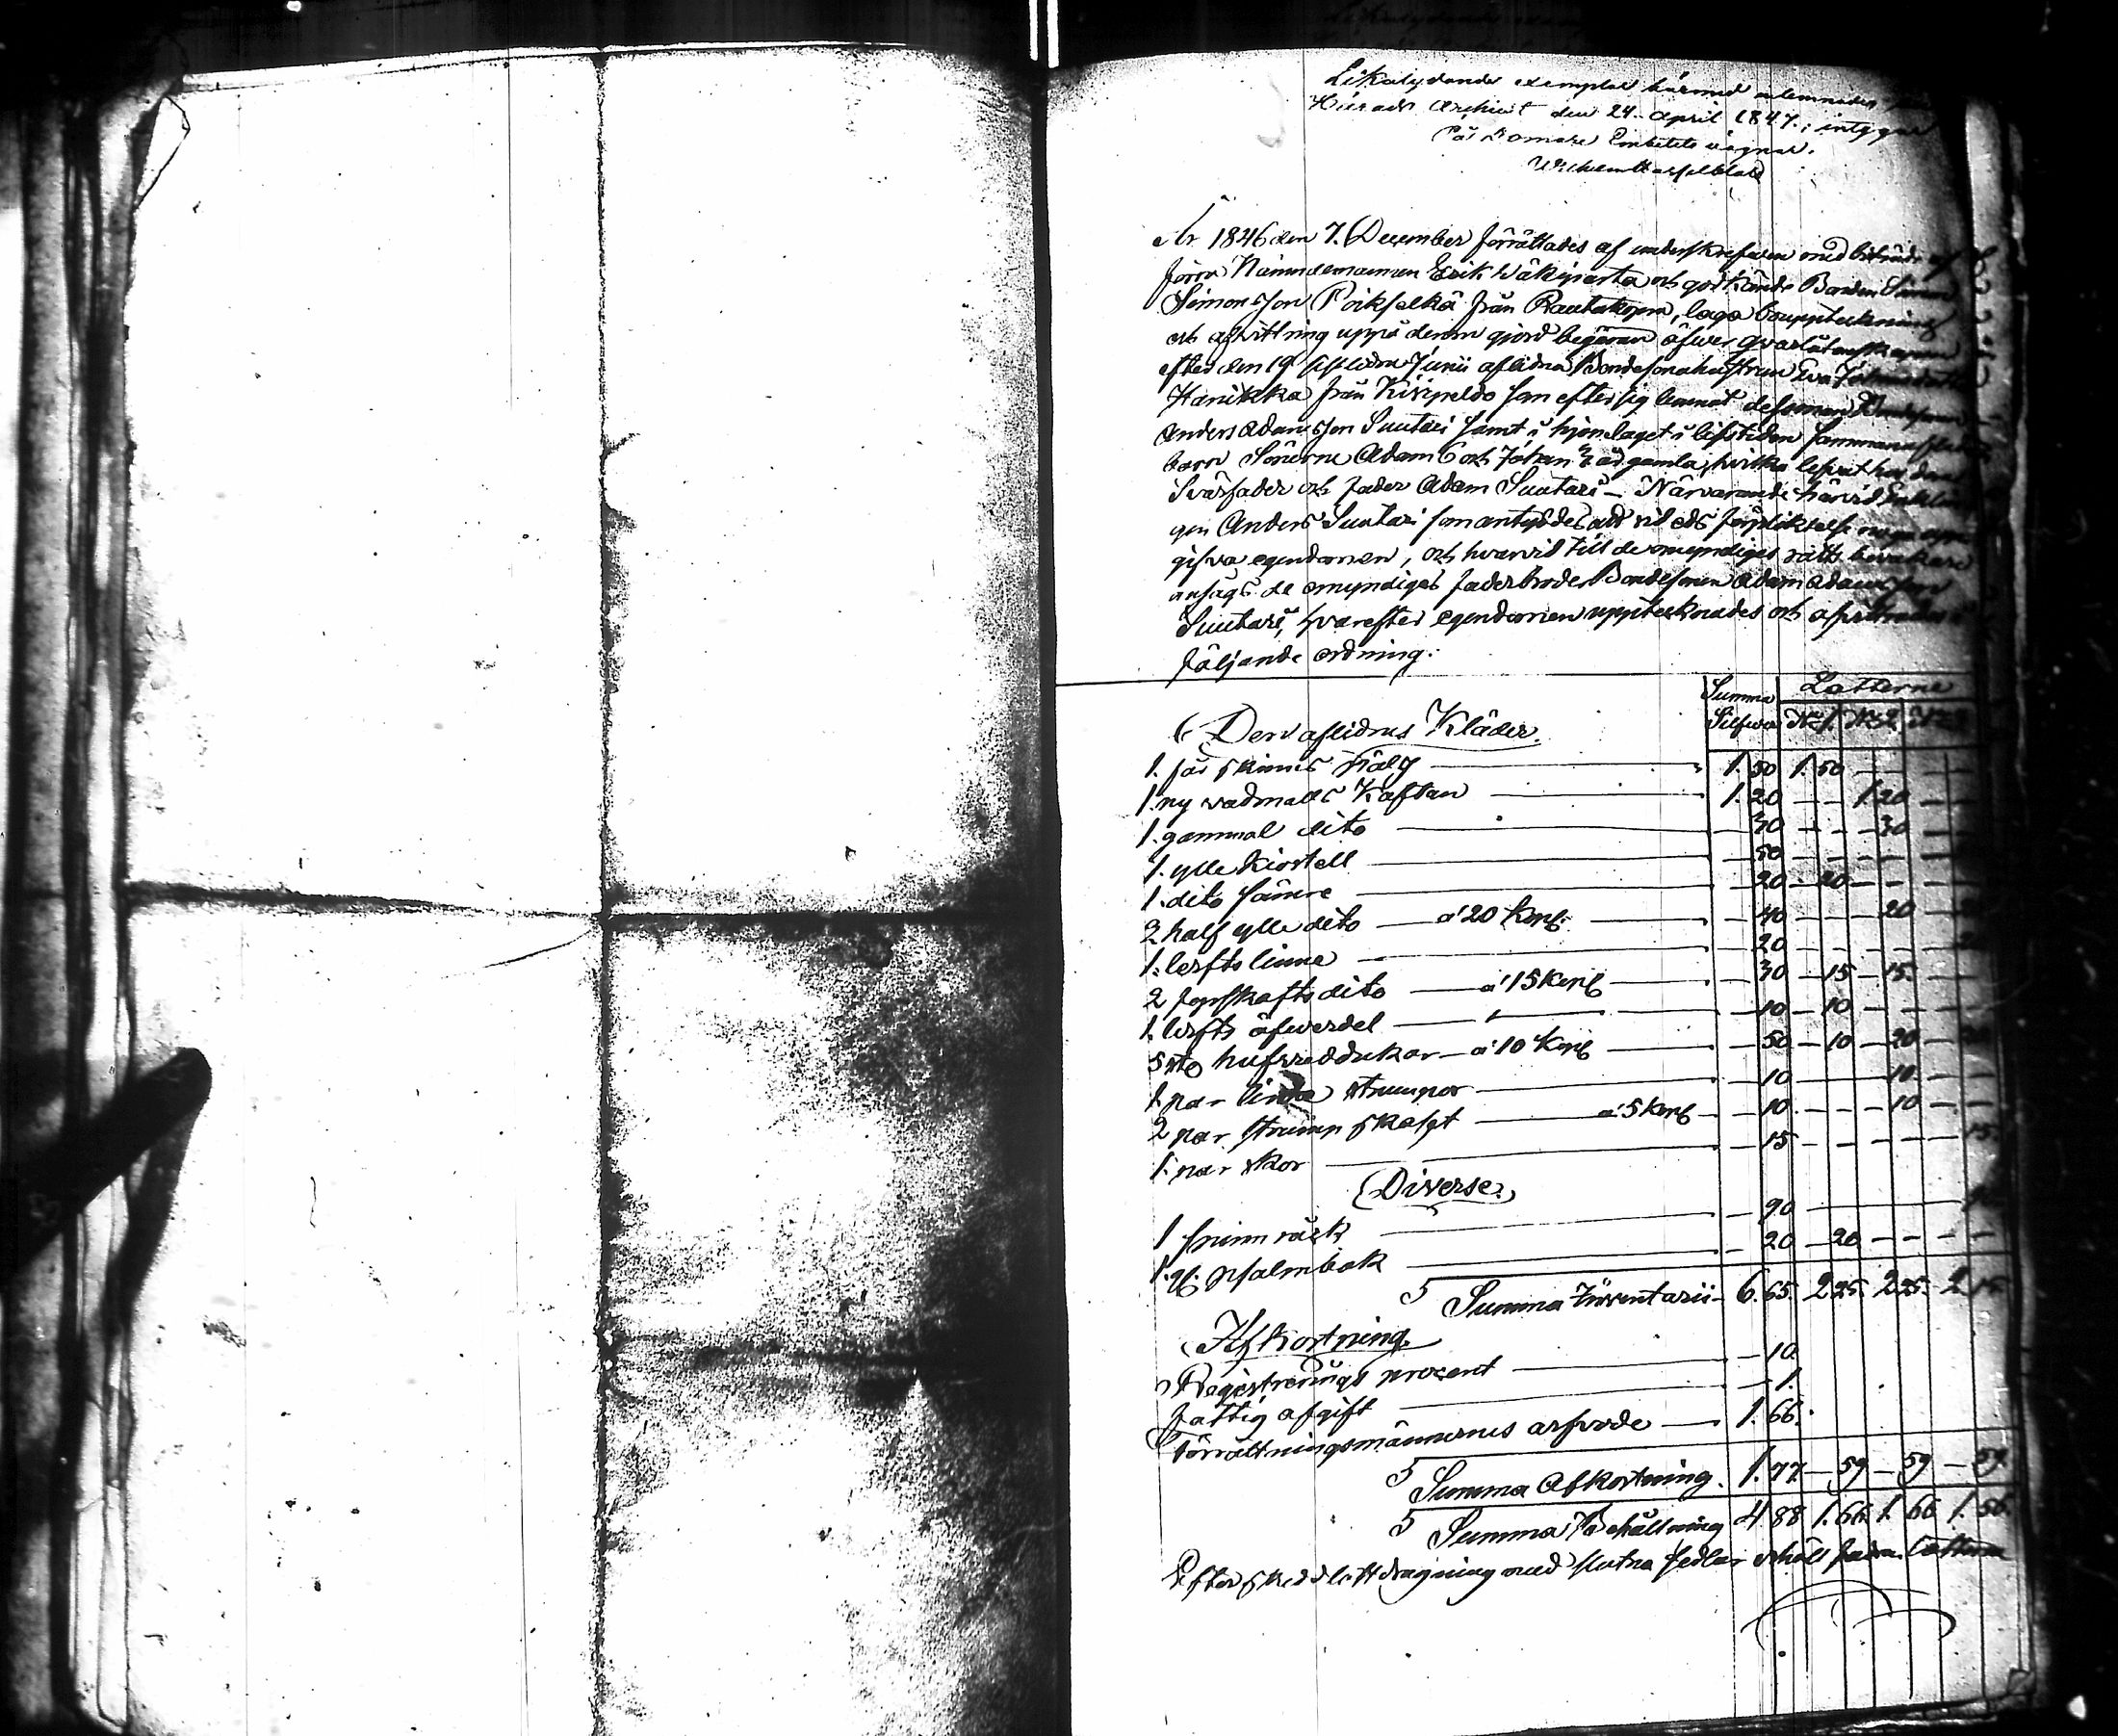 Likalydande exemplar härmed aflemnades
Härads Archivet den 24 April 1847; intygar
På Domare Embetets vägnar.
År 1846 den 7. December förrättades af underskrefwen med biträde af
förra Nämndemannen Erik Wäkiparta och godkände Bonden Simon
Simonsson Poikselkä från Rautakorpi, laga bouppteckning
och afwittring uppå derom gjord begäran öfwer qwarlåtenskapen
efter den 19 sistledne Junii aflidna Bondesonahustrun Eva Johansdotter
Hanikka från Kiripeldo som efter sig lemnat dess man Bondesonen
Anders Adamsson Suutari samt i hjonelaget i lifstiden sammanaflade
barn Sönerne Adam 6 och Johan 3 år gamla, hvilka lefvat hos dem
Svärfader och fader Adam Suutari – Närvarande härvid Enklin
gen Anders Suutari som antyddes att vid eds förpliktelse noga upp
gifva egendomen, och hvarvid till de omyndiges rätts bevakare
ansågs de omyndiges faderbroder Bondesonen Adam Adamsson
Suutari, hvarefter egendomen upptecknades och afpritades i
följande ordning:
Summa Lotterne
Silfwer No 1. No 2. No 3
Den aflidnes Kläder.
1. får skinns Pälg — 1. 50 1. 50 — —
1. ny vadmals Kaftan — 1. 20 — — 1 20 —
1. gammal dito — 30 — — 30 —
1. ylle Kiortell — 50 — — —
1. dito sämre — 20 — 20 — —
2 half ylle dito — a' 20 Kop. — 40 — — 20 —
1. lerfts linne — 20 — — —
2 fyrskafts dito — a' 15 Kop. — 30 — 15 — 15. —
1. lerfts öfwerdel — 10 — 10 — —
5 st. hufvuddukar — a' 10 Kop. — 50 — 10 — 20 —
1 par linda strumpor — 10 — — 10 —
2 par strump skaft — a' 5 Kop. — 10 — — 10 —
1. par skor — 15 — — — 15.
Diverse
1 spinn råck — 90 —
1. gl. psalmbok — 20 — 20 — —
Summa Inventarii 6. 65. 2 25. 2 25. 2 15
Afkortning
Registrerings procent — 10.
fattig afgift — 1.
Förrättningsmännernes arfvode — 1. 66.
Summa Afkortning. 1. 77 — 59 — 59 — 59.
Summa Behållning 4 88 1. 66. 1. 66 1. 56.
Efter skedd lottdragning med slutna sedlar erhöll fadren lotten